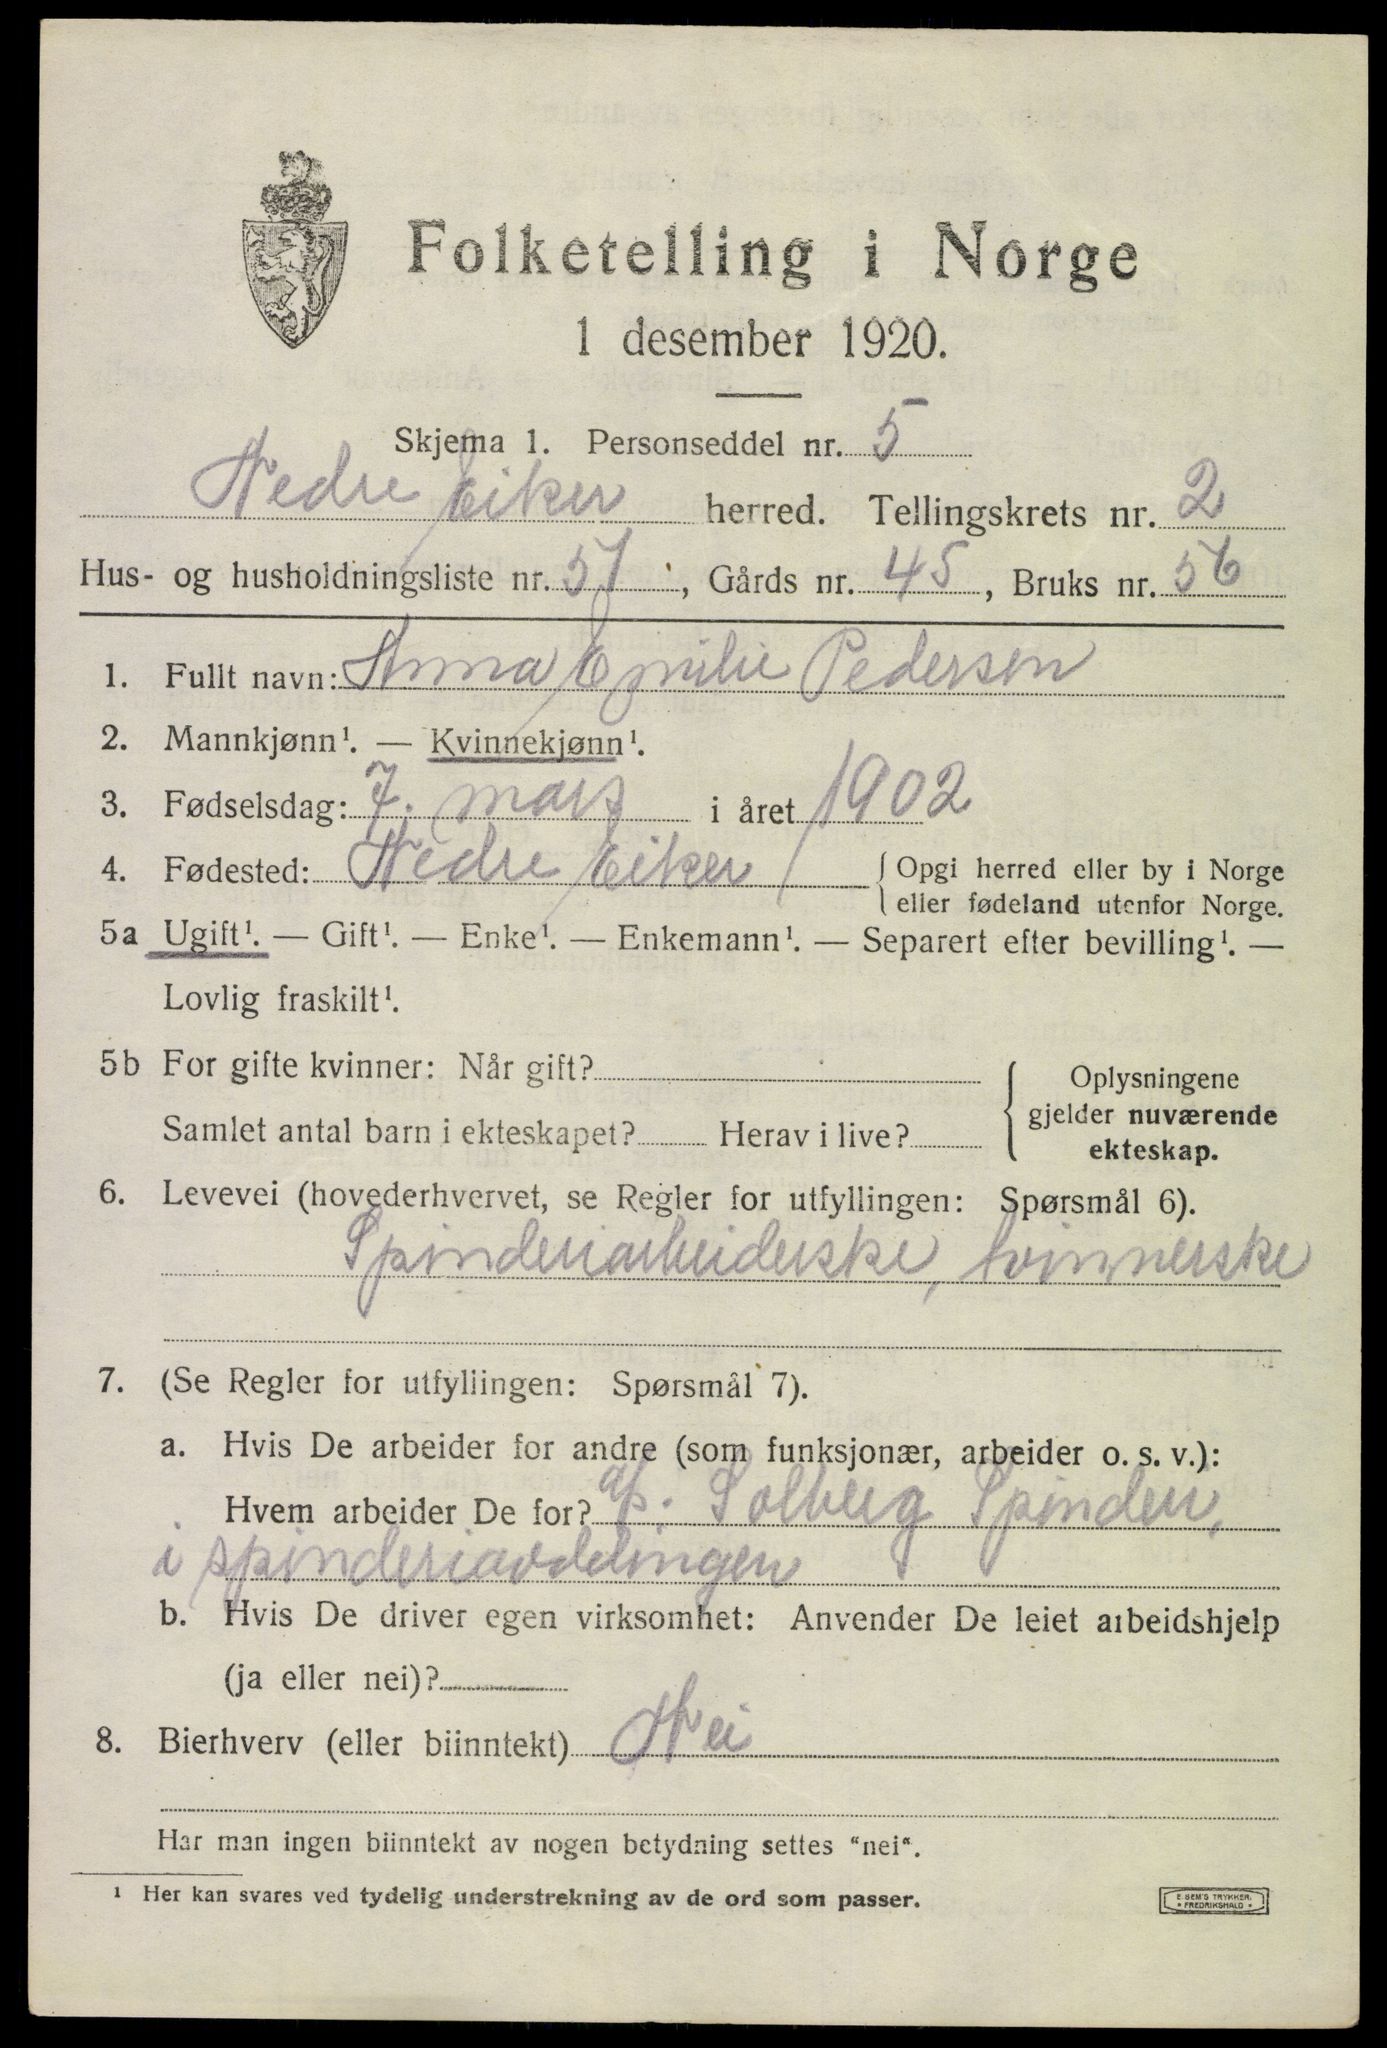 Folketelling i Norge
1 desember 1920.
Skjema 1. Personseddel nr. 5
Nedre Eiker herred. Tellingskrets nr. 2
Hus- og husholdningsliste nr. 51, Gårds nr. 45, Bruks nr. 56
1. Fullt navn: Anna Emilie Pedersen
2. Mannkjønn¹. — Kvinnekjønn¹.
3. Fødselsdag: 7. mars i året 1902
4. Fødested: Nedre Eiker { Opgi herred eller by i Norge
eller fødeland utenfor Norge.
5a Ugift¹. — Gift¹. — Enke¹. — Enkemann¹. — Separert efter bevilling¹. —
Lovlig fraskilt¹.
5b For gifte kvinner: Når gift?
Samlet antal barn i ekteskapet? Herav i live?
Oplysningene
gjelder nuværende
ekteskap.
6. Levevei (hovederhvervet, se Regler for utfyllingen: Spørsmål 6).
Spinderiarbeiderske, tvinnerske
7. (Se Regler for utfyllingen: Spørsmål 7).
a. Hvis De arbeider for andre (som funksjonær, arbeider o. s. v.):
Hvem arbeider De for? Solberg Spinderi,
i spinderiavdelingen
b. Hvis De driver egen virksomhet: Anvender De leiet arbeidshjelp
(ja eller nei)?
8. Bierhverv (eller biinntekt) Nei
Har man ingen biinntekt av nogen betydning settes "nei".
¹ Her kan svares ved tydelig understrekning av de ord som passer.
E. SEM'S TRYKKER.
* FREDRIKSHALD *